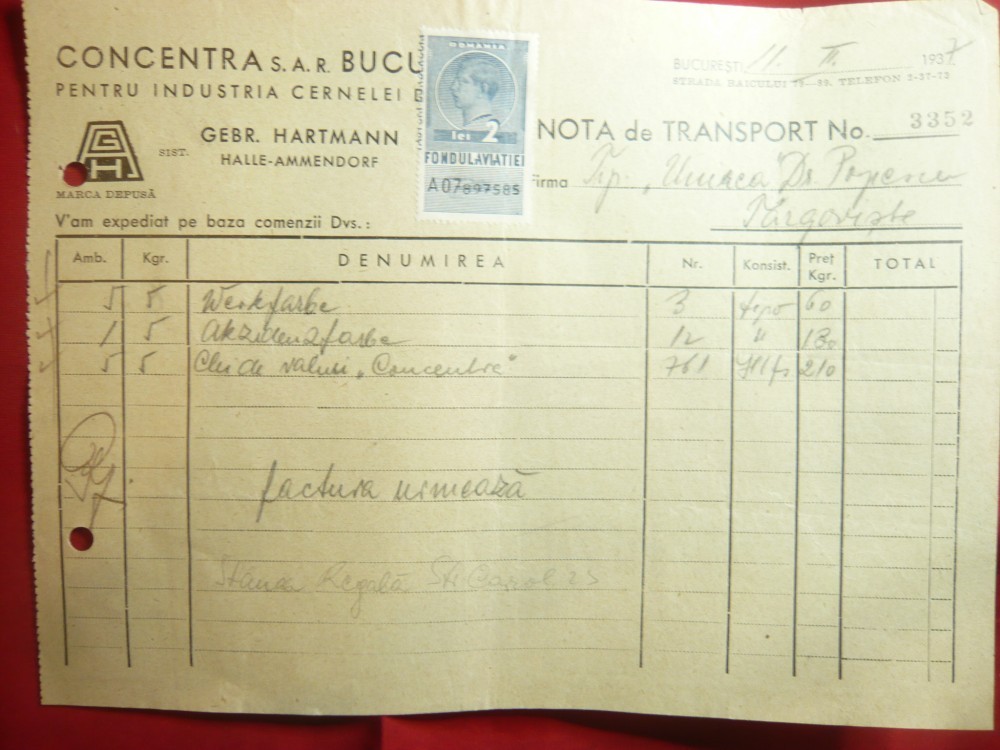 CONCENTRA S.A.R. BUCU
PENTRU INDUSTRIA CERNELEI
GH
SIST. GEBR. HARTMANN
HALLE-AMMENDORF
MARCA DEPUSĂ
ROMANIA
lei 2
FONDUL AVIATIEI
A07897585
BUCUREȘTI, 11. II. 1937
STRADA BAICULUI TELEFON 2-37-72
NOTA de TRANSPORT No. 3352
firma Tip. Dr. Popescu
Târgoviște
V'am expediat pe baza comenzii Dvs.:
Amb. Kgr. DENUMIREA Nr. Konsist. Preț Kgr. TOTAL
5 5 Werkfarbe 3 60
1 5 Akzidenzfarbe 12 " 130
5 5 Clei de valuri „Concentra" 761 210
factura urmează
Regală Str Carol 25